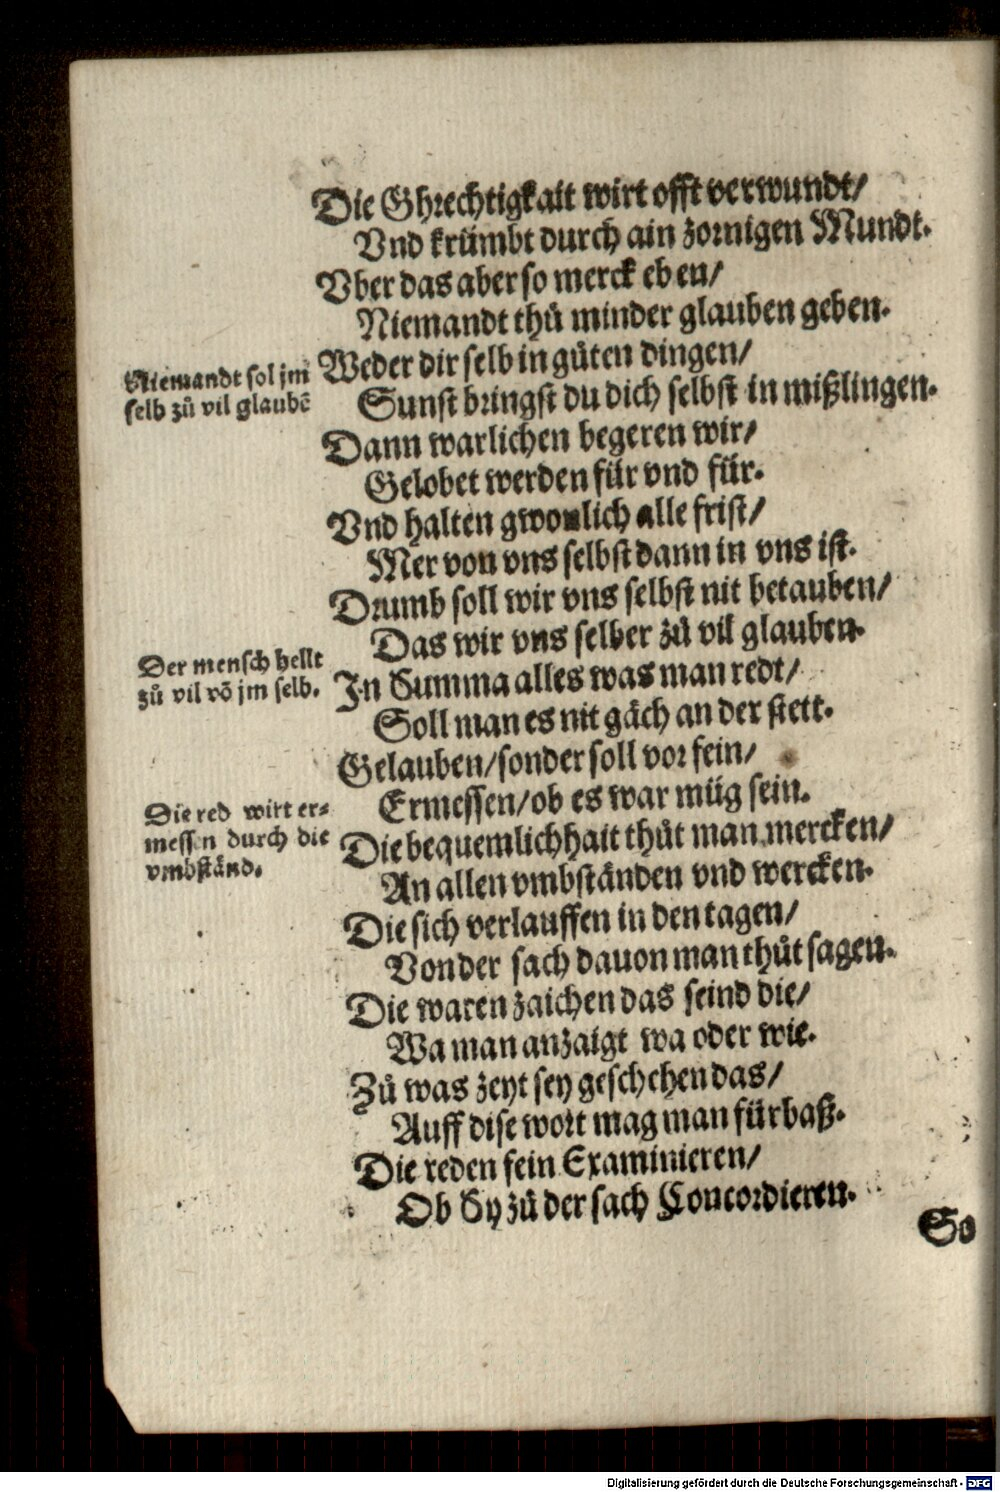 Die Ghrechtigkait wirt offt verwundt/
Vnd krümbt durch ain zornigen Mundt.
Vber das aber so merck eben/
Niemandt thů minder glauben geben.
Niemandt sol jm
selb zů vil glaubē
Weder dir selb in gůten dingen/
Sunst bringst du dich selbst in mißlingen.
Dann warlichen begeren wir/
Gelobet werden für vnd für.
Vnd halten gwonlich alle frist/
Mer von vns selbst dann in vns ist.
Drumb soll wir vns selbst nit betauben/
Das wir vns selber zů vil glauben.
Der mensch hellt
zů vil vō jm selb.
In Summa alles was man redt/
Soll man es nit gäch an der stett.
Gelauben/sonder soll vor fein/
Ermessen/ob es war müg sein.
Die red wirt er-
messen durch die
vmbständ.
Die bequemlichhait thůt man mercken/
An allen vmbständen vnd wercken.
Die sich verlauffen in den tagen/
Von der sach dauon man thůt sagen.
Die waren zaichen das seind die/
Wa man anzaigt wa oder wie.
Zů was zeyt sey geschehen das/
Auff dise wort mag man fürbaß.
Die reden fein Examinieren/
Ob Sy zů der sach Concordieren.
So
Digitalisierung gefördert durch die Deutsche Forschungsgemeinschaft - DFG